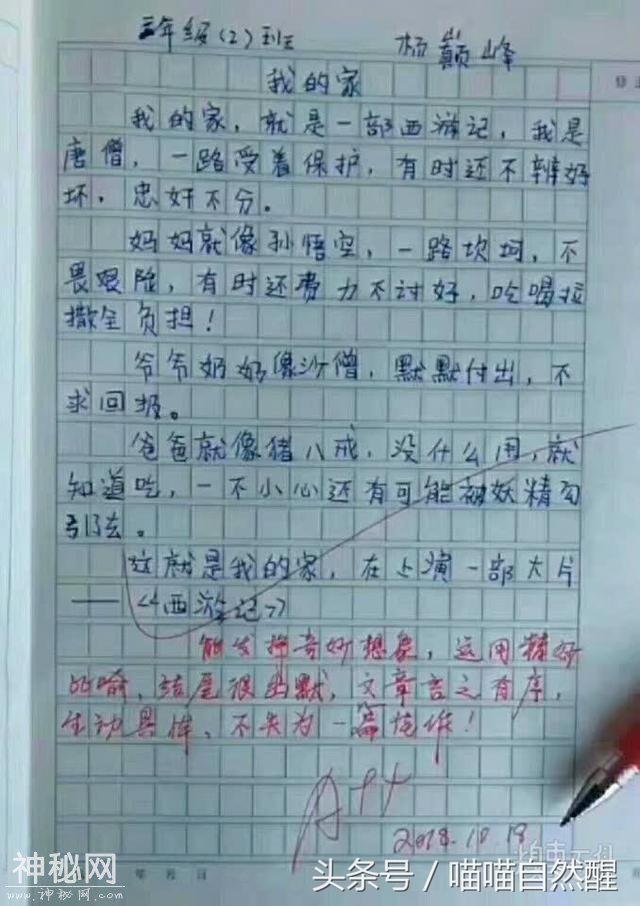 三年级(2)班 杨巅峰
我的家
我的家，就是一部西游记，我是
唐僧，一路受着保护，有时还不辨好
坏，忠奸不分。
妈妈就像孙悟空，一路坎坷，不
畏艰险，有时还费力不讨好，吃喝拉
撒全负担！
爷爷奶奶像沙僧，默默付出，不
求回报。
爸爸就像猪八戒，没什么用，就
知道吃，一不小心还有可能被妖精勾
引去。
这就是我的家，在上演一部大片
——《西游记》
能发挥奇妙想象，运用精妙
的喻，结尾很幽默，文章言之有序，
生动具体，不失为一篇佳作！
A++
2018.10.18
神秘网
www.神秘网.com
头条号/喵喵自然醒